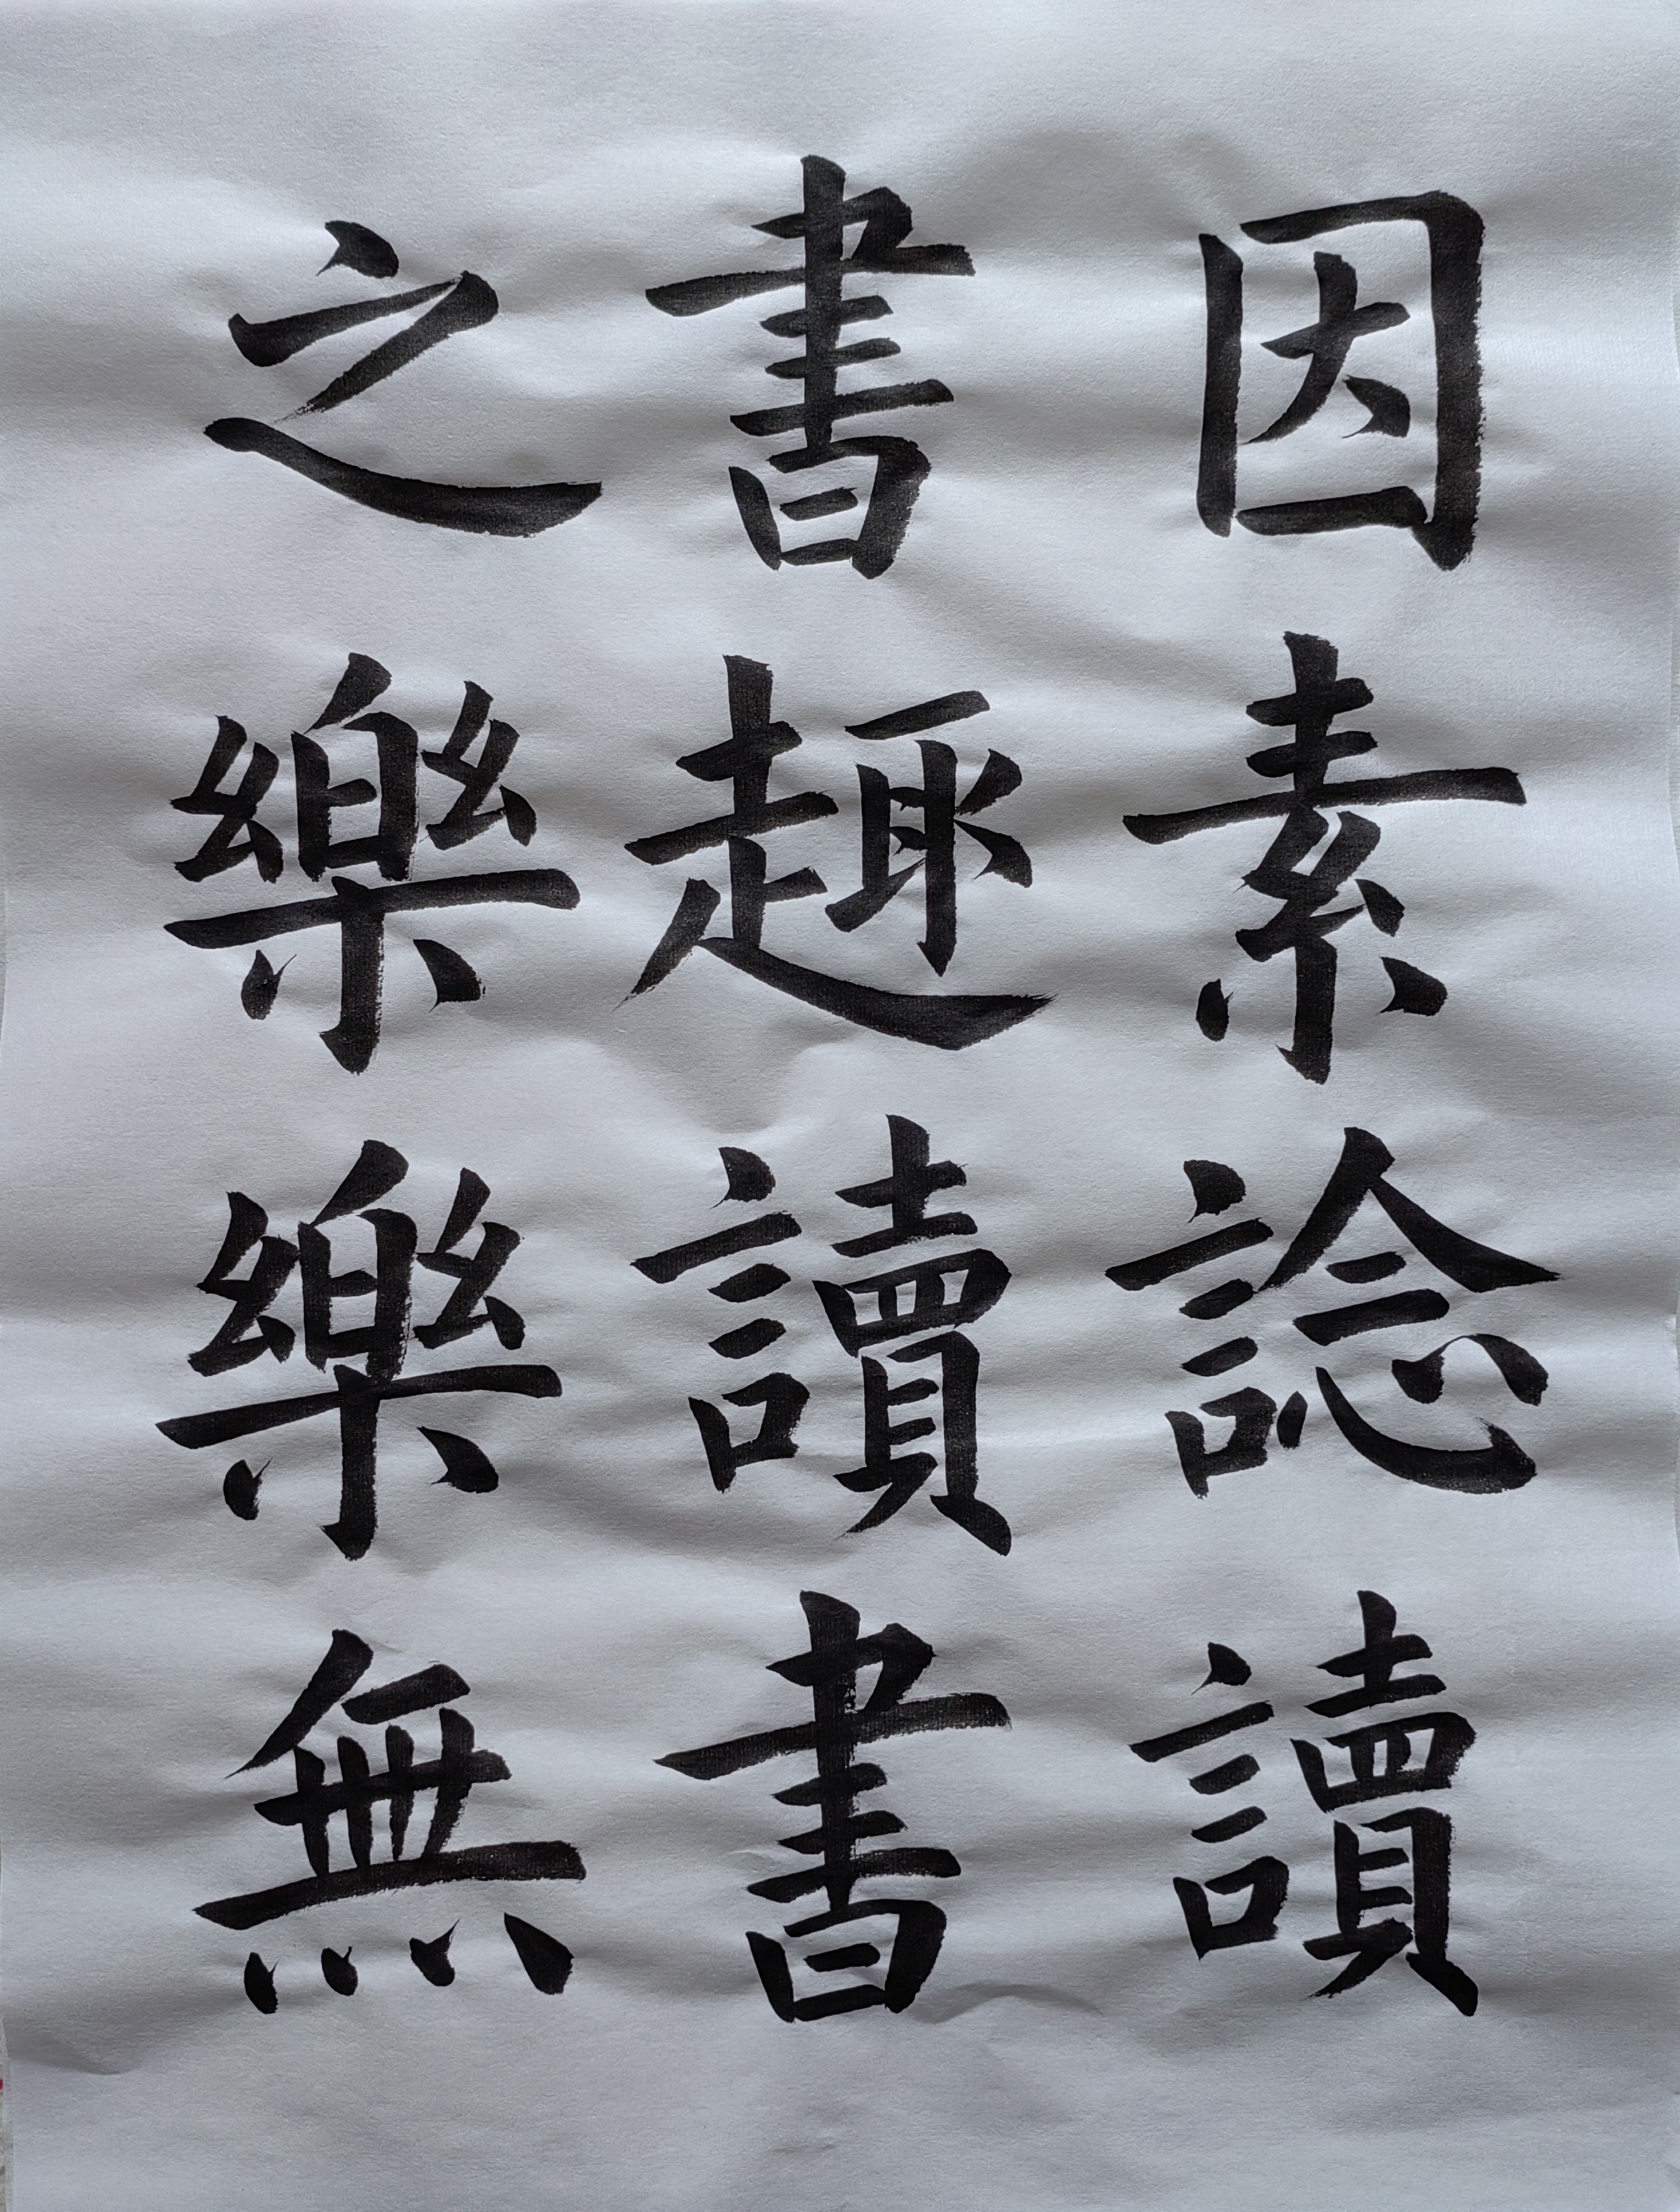 因素諗讀
書趣讀書
之樂樂無